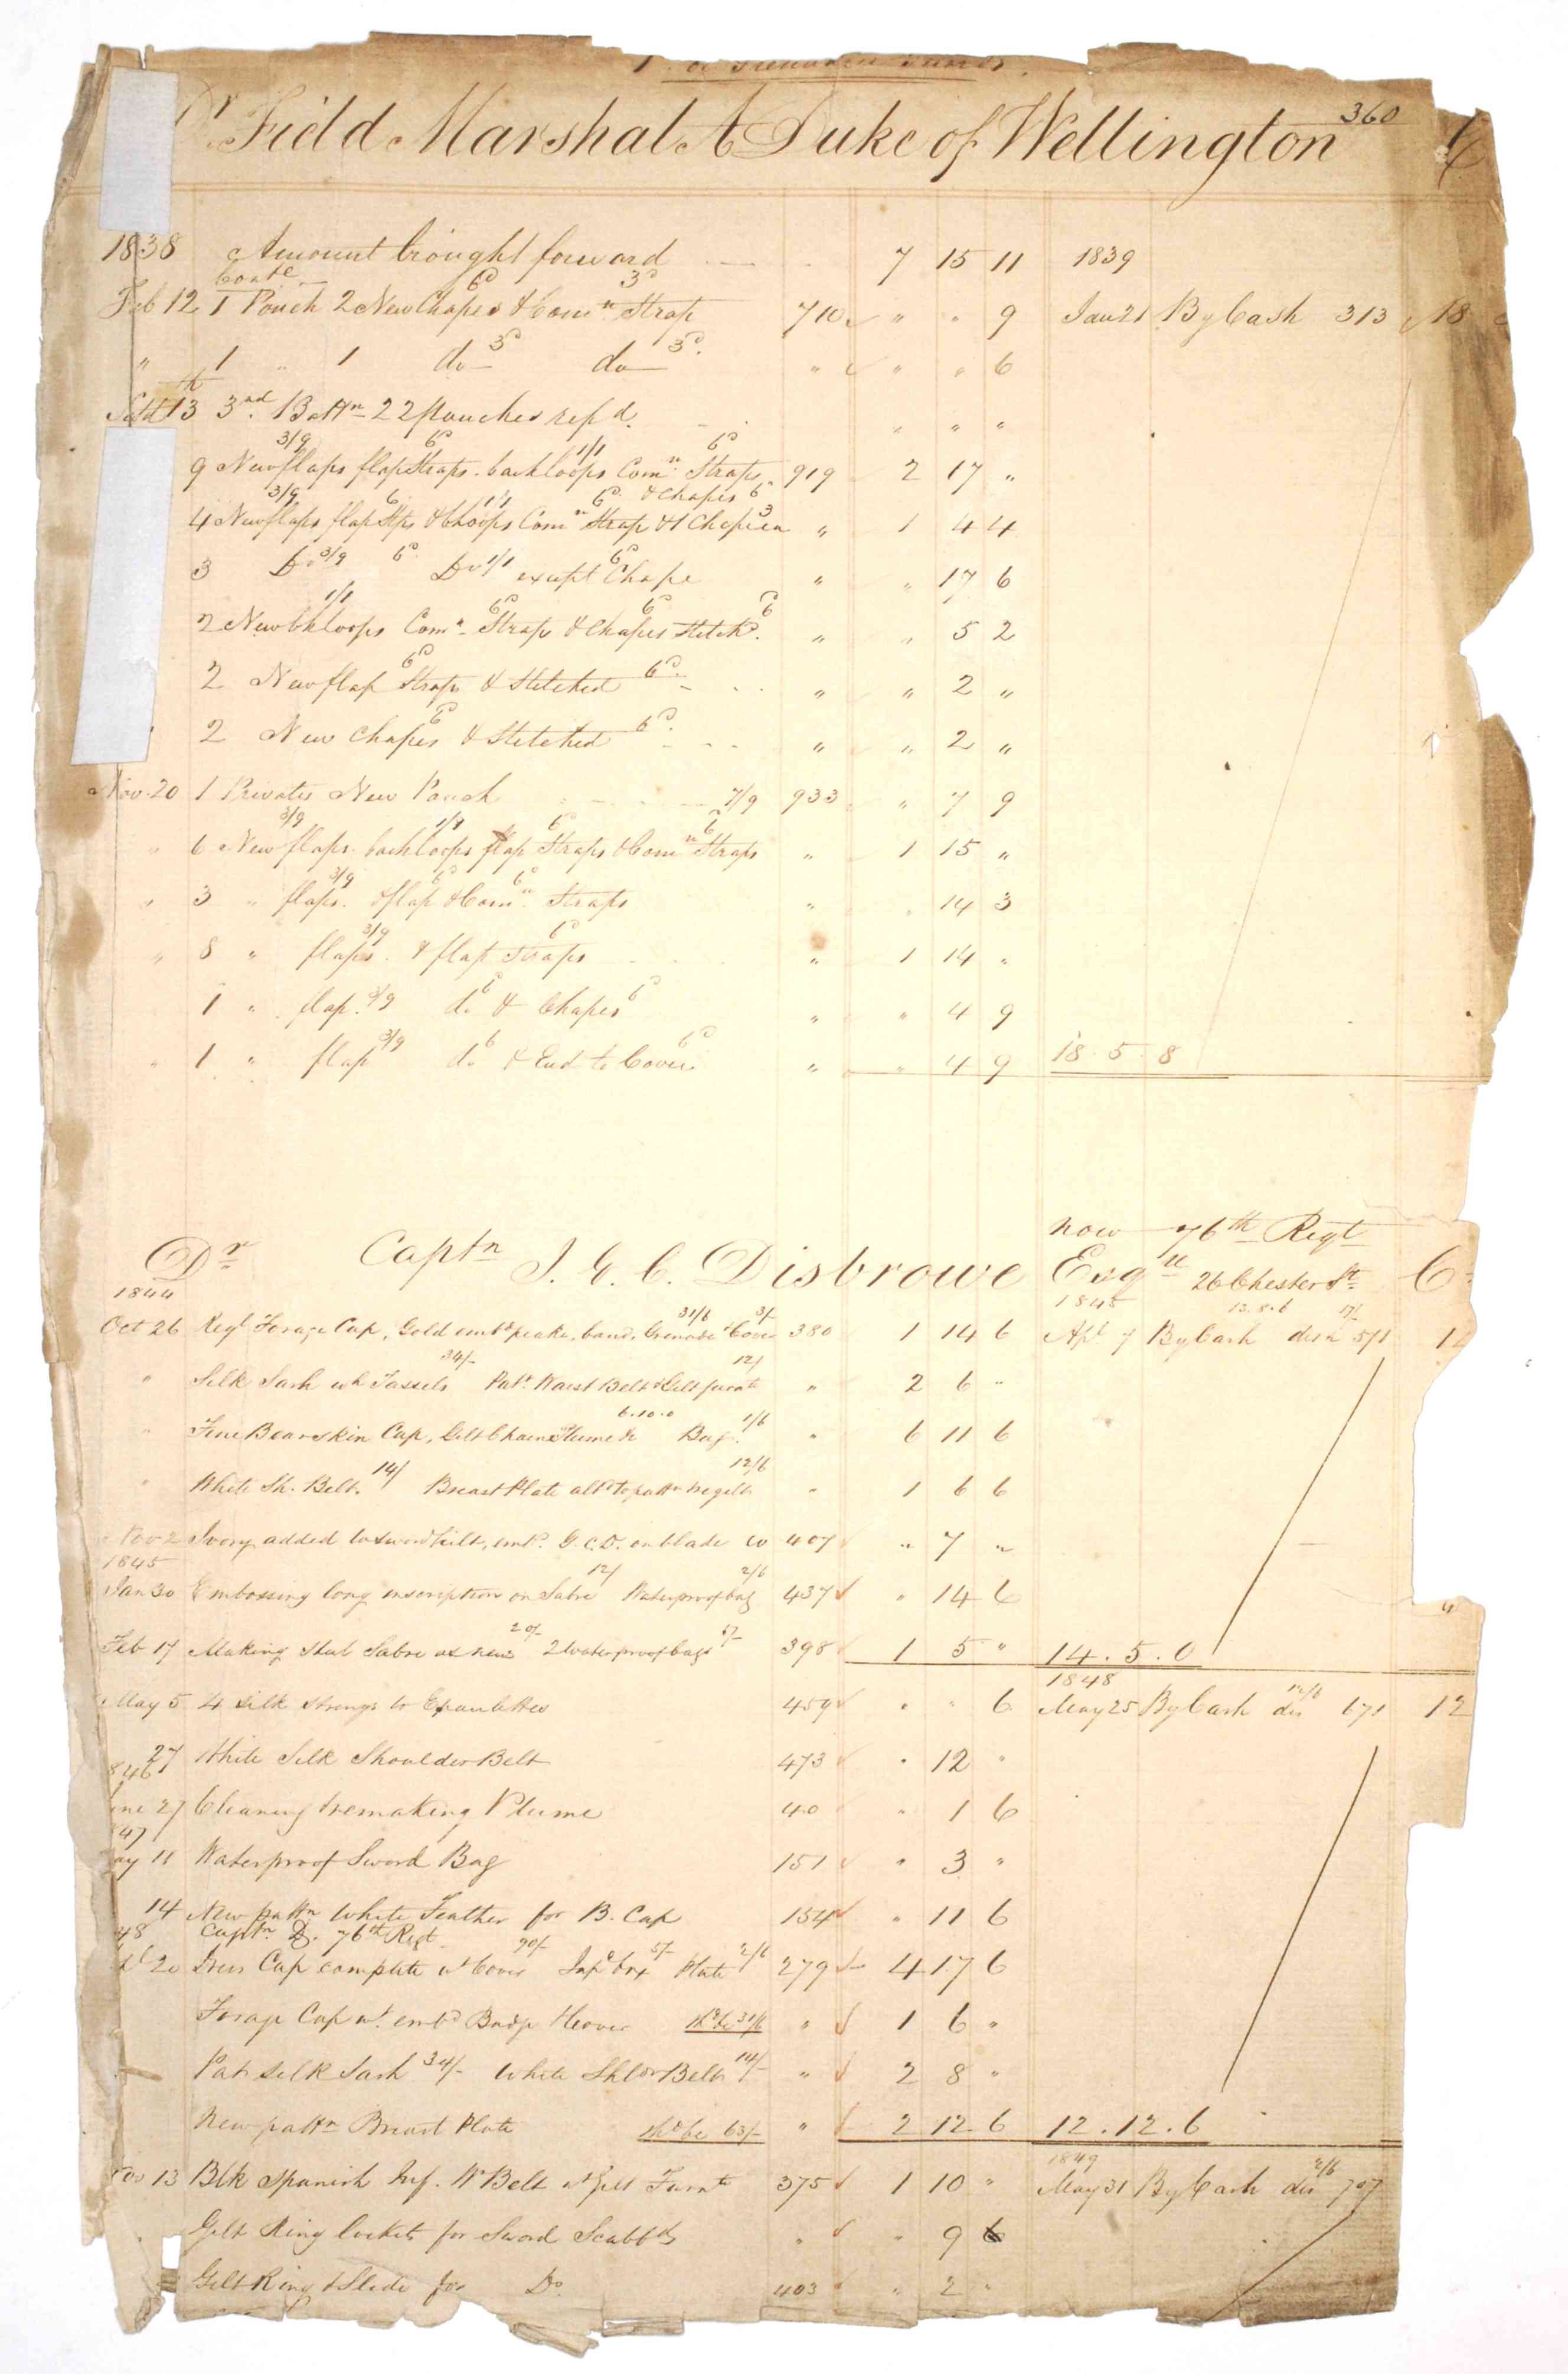 360
Dr Field Marshal A Duke of Wellington C
1838 Amount brought forward 7 15 11 1839
Coate 6D 3D
Feb 12 1 Pouch 2 New Chapes & Comn Strap 710 " " 9 Jan 21 By Cash 313 18
" 1 " 1 do 3D do 3D " " " 6
13th 3rd Battn 22 pouches repd. " " "
3/9 6D 1/1 6D
9 New flaps flap Straps. back loops Comn Straps & Chapes 6 919 2 17 "
3/9 6 1/1 6D 3
4 New flaps flap Stps & bk loops Comn Strap & 1 Chape ea " 1 4 4
3 Do 3/9 6D Do 1/1 except 6D Chape " " 17 6
1/1 6D 6D 6
2 New bk loops Comn Straps & Chapes Stitchd. " " 5 2
2 New flap 6D Straps & Stitched 6D " " 2 "
2 New Chapes 6D & Stitched 6D " " 2 "
Nov. 20 1 Privates New Pouch 7/9 933 " 7 9
3/9 1/1 6D 6
" 6 New flaps. back loops flap Straps & Comn Straps " 1 15 "
3/9 6D 6D
" 3 " flaps. & flap & Comn. Straps " " 14 3
3/9 6D
" 8 " flaps. & flap Straps " 1 14 "
1 " flap. 3/9 do 6 & Chapes 6 " " 4 9
" 1 " flap 3/9 do 6 & End to Cover 6D " " 4 9 18.5.8
now 76th Regt
Dr Captn J. G. C. Disbrowe Esqre 26 Chester St. C
1844 1845 13.8.6 17/
31/6 3/-
Oct 26 Regl Forage Cap, Gold embd peake, band, Grenade & Cover 380 1 14 6 Apl 7 By Cash dis 571
34/- 12/
" Silk Sash wh Tassels Patt. Waist Belt & Gilt furnte " 2 6 "
6.10.0 1/6
" Fine Bearskin Cap, Gilt Chain Plume &c Bag. " 6 11 6
14/ 12/6
" White Sh. Belt. Breast Plate altd to pattn & regilt " 1 6 6
Nov 2 Ivory added to sword hilt, embd. G.C.D. on blade 407 " 7 "
1845
12/ 2/6
Jan 30 Embossing long inscription on Sabre Waterproof bag 437 " 14 6
20/- 5/-
Feb 17 Making Steel Sabre as new 2 Waterproof bags 398 1 5 " 14.5.0
1848
May 5 4 silk strings to Epaulettes 459 " " 6 May 25 By Cash dis 12/6 671 12
27 White Silk Shoulder Belt 473 " 12 "
846
une 27 Cleaning & remaking Plume 40 " 1 6
47
ay 11 Waterproof Sword Bag 151 " 3 "
14 New pattn White Feather for B. Cap 154 " 11 6
48 Captn D. 76th Regt.
90/- 5/- 2/6
20 Dress Cap complete wt Cover Japd box Plate 279 4 17 6
Forage Cap wt. embd Badge & Cover shd be 31/6 " 1 6 "
Pat silk Sash 34/- White Shldr Belt 14/- " 2 8 "
New pattn Breast Plate shd be 63/- " 2 12 6 12.12.6
1849
13 Blk Spanish Inf. W Belt wt Gilt Furnte 375 1 10 " May 31 By Cash dis 2/6 707
Gilt Ring lockets for Sword Scabbd " " 9 6
Gilt Ring & Slide for Do. 403 " 2 "